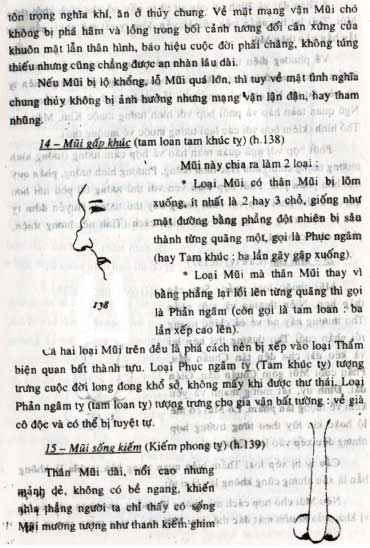 tôn trọng nghĩa khí, ăn ở thủy chung. Về mặt mạng vận Mũi chó
không bị phá hãm và lồng trong bối cảnh tương đối cân xứng của
khuôn mặt lẫn thân hình, báo hiệu cuộc đời phải chăng, không túng
thiếu nhưng cũng chẳng được an nhàn lâu dài.
Nếu Mũi bị lộ khổng, lỗ Mũi quá lớn, thì tuy về mặt tình nghĩa
chung thủy không bị ảnh hưởng nhưng mạng vận lận đận, hay tham
nhũng.
14 – Mũi gấp khúc (tam loan tam khúc tỵ) (h.138)
Mũi này chia ra làm 2 loại :
* Loại Mũi có thân Mũi bị lõm
xuống, ít nhất là 2 hay 3 chỗ, giống như
mặt đường bằng phẳng đột nhiên bị sâu
thành từng quãng một, gọi là Phục ngâm
(hay Tam khúc : ba lần gãy gập xuống).
* Loại Mũi mà thân Mũi thay vì
bằng phẳng lại lồi lên từng quãng thì gọi
là Phản ngâm (còn gọi là tam loan : ba
lần xếp cao lên).
138
Cả hai loại Mũi trên đều là phá cách nên bị xếp vào loại Thẩm
biện quan bất thành tựu. Loại Phục ngâm tỵ (Tam khúc tỵ) tượng
trưng cuộc đời long đong khổ sở, không mấy khi được thư thái. Loại
Phản ngâm tỵ (tam loan tỵ) tượng trưng cho gia vận bất tường : về già
cô độc và có thể bị tuyệt tự.
15 – Mũi sống kiếm (Kiếm phong tỵ) (h.139)
Thần Mũi dài, nổi cao nhưng
mảnh dẻ, không có bề ngang, khiến
nhìn thẳng người ta chỉ thấy có sống
Mũi mường tượng như thanh kiếm ghim